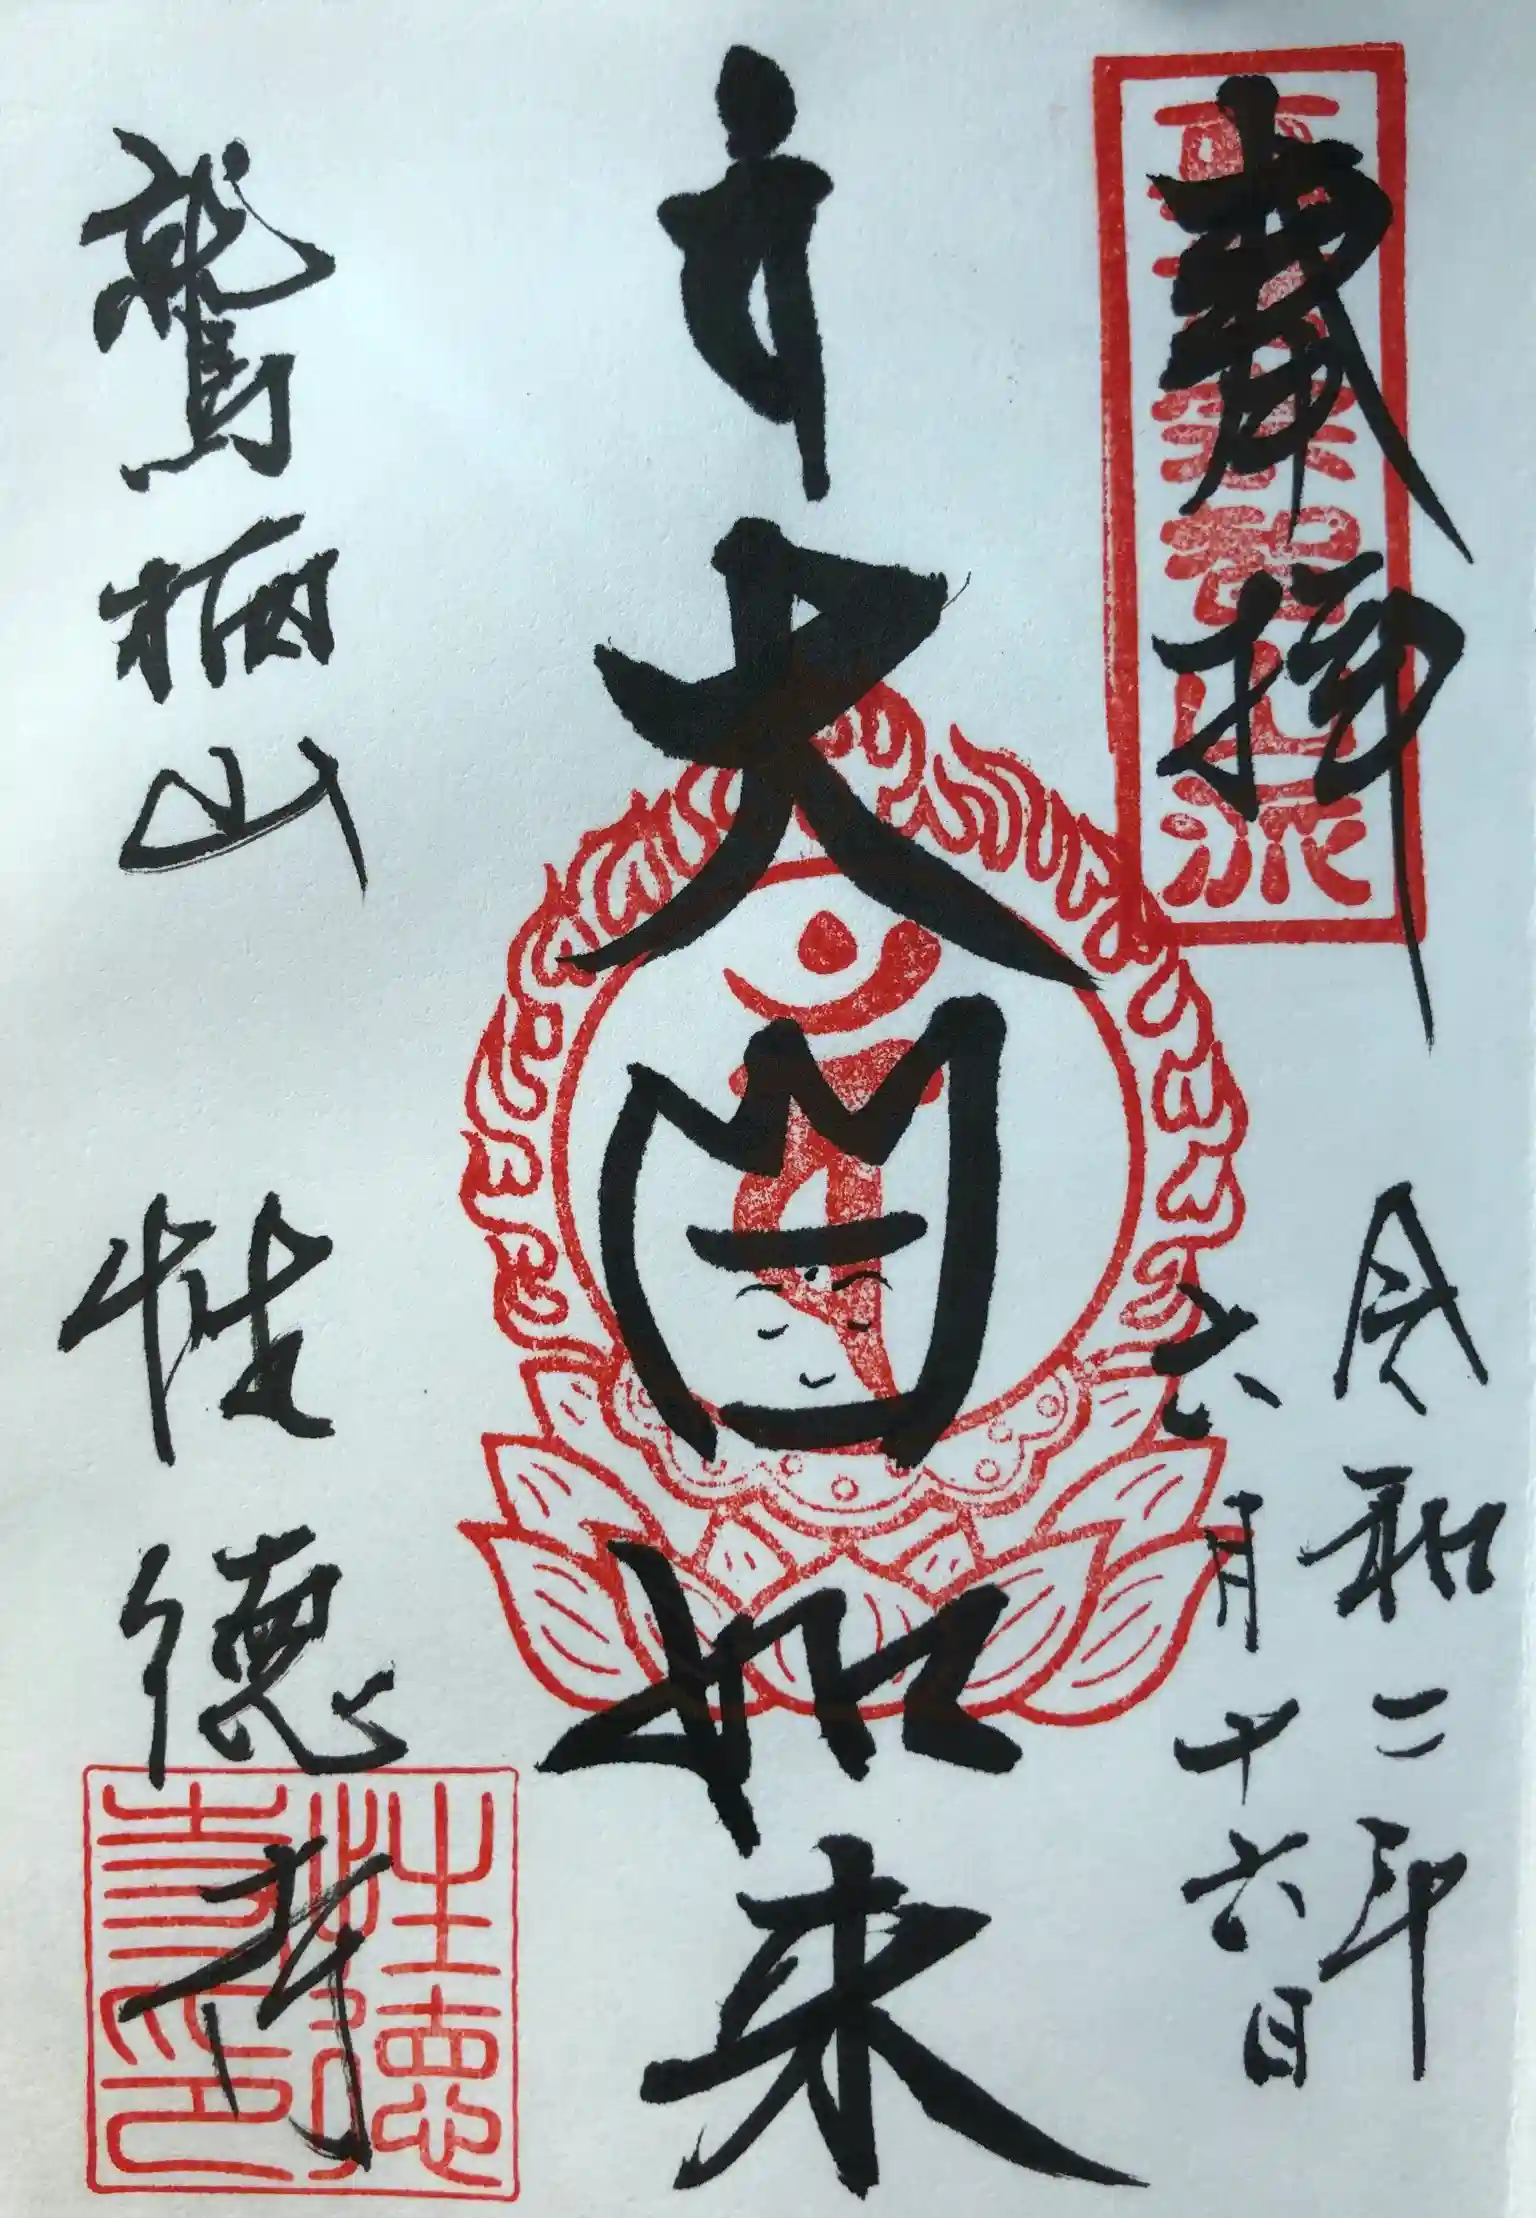 奉拝
真言宗智山派
令和二年
六月十六日
大日如来
鷲栖山
性徳寺
性徳
寺印